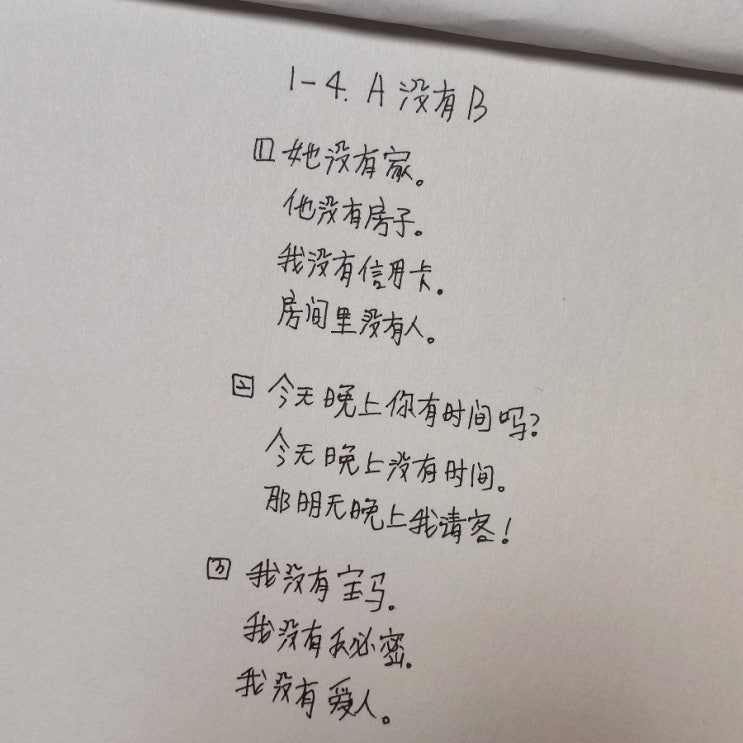 1-4. A 没有 B
① 她没有家。
他没有房子。
我没有信用卡。
房间里没有人。
② 今天晚上你有时间吗?
今天晚上没有时间。
那明天晚上我请客!
③ 我没有宝马。
我没有秘密.
我没有爱人。